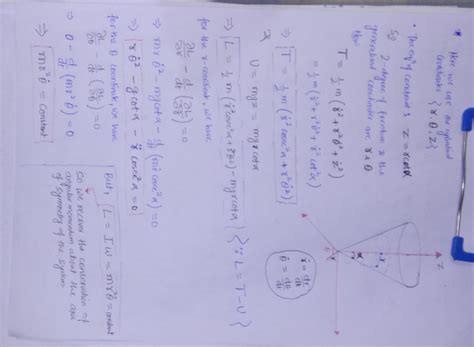 * Here we use the generalised
coordinates {r, θ, z}
• The eqⁿ of constraint is z = r cot α
So 2-degree of freedom & the
generalised coordinates are r & θ
T = ½ m (ṙ² + r²θ̇² + ż²)
= ½ m (ṙ² + r²θ̇² + ṙ² cot²α)
⇒ T = ½ m (ṙ² cosec²α + r²θ̇²)
U = mgz = mgr cot α
⇒ L = ½ m (ṙ² cosec²α + r²θ̇²) - mgr cot α {∵ L = T - U}
for the r-coordinate, we have
∂L/∂r - d/dt (∂L/∂ṙ) = 0
⇒ mrθ̇² - mg cot α - d/dt (mṙ cosec²α) = 0
⇒ rθ̇² - g cot α - r̈ cosec²α = 0
for the θ coordinate, we have
∂L/∂θ - d/dt (∂L/∂θ̇) = 0
⇒ 0 - d/dt (mr²θ̇) = 0
⇒ mr²θ̇ = constant
But, L = Iω = mr²θ̇ = constant
So we recover the conservation of
angular momentum about the axis
of symmetry of the system
z
α
ṙ = dr/dt
θ̇ = dθ/dt